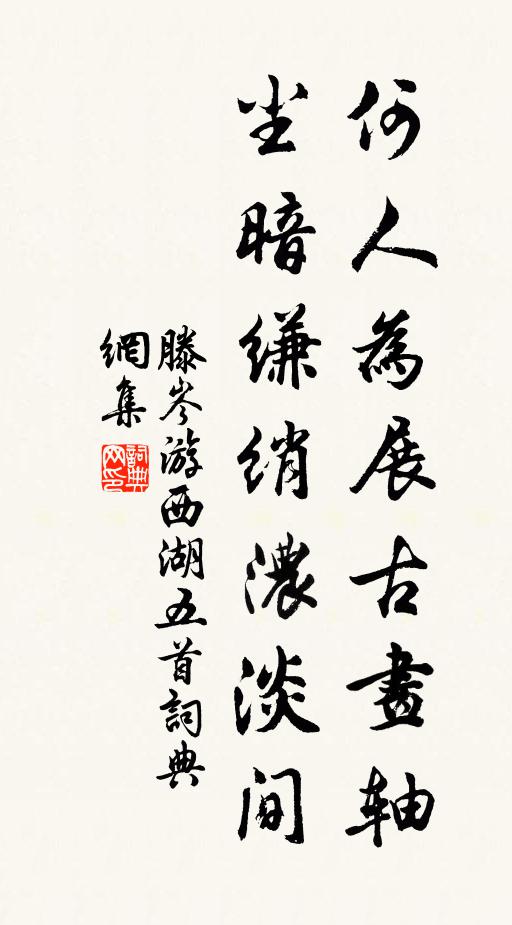 何人為展古畫軸
尘暗縑綃濃淡间
滕岑游西湖五首詞典
網集
詞典网印